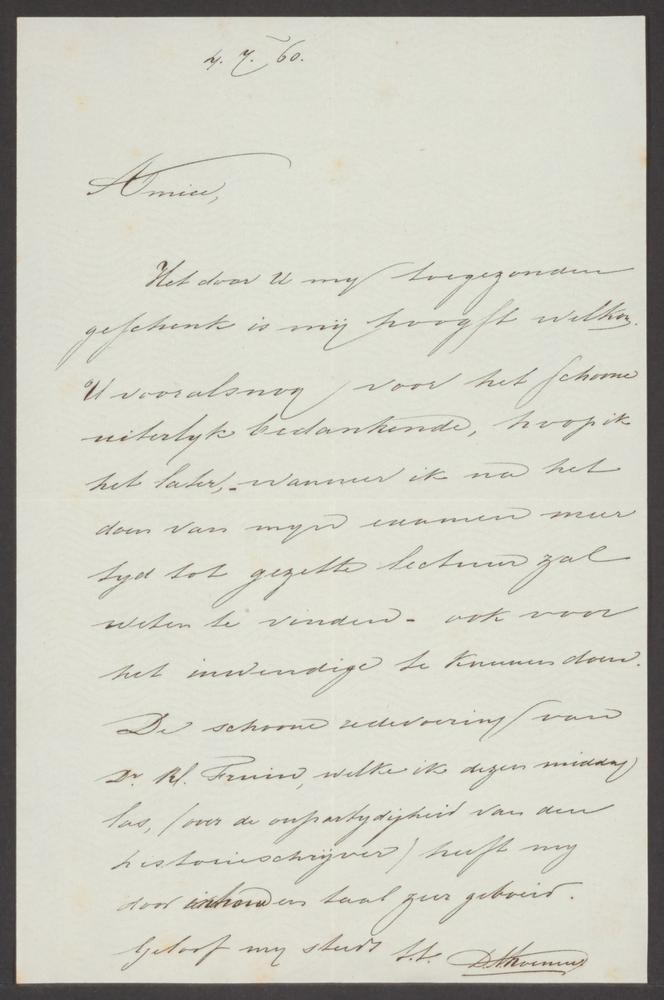 4. 7. 60.
Amice,
Het door U my toegezonden
geschenk is mij hoogst welkom.
U vooralsnog voor het schoone
uiterlyk bedankende, hoop ik
het later, - wanneer ik na het
doen van myn examen meer
tyd tot gezette lectuur zal
weten te vinden - ook voor
het inwendige te kunnen doen.
De schoone redevoering van
Dr. R. Fruin, welke ik dezen middag
las, (over de onpartydigheid van den
historieschrijver) heeft my
door inhoud en taal zeer geboeid.
Geloof my steeds t.t.